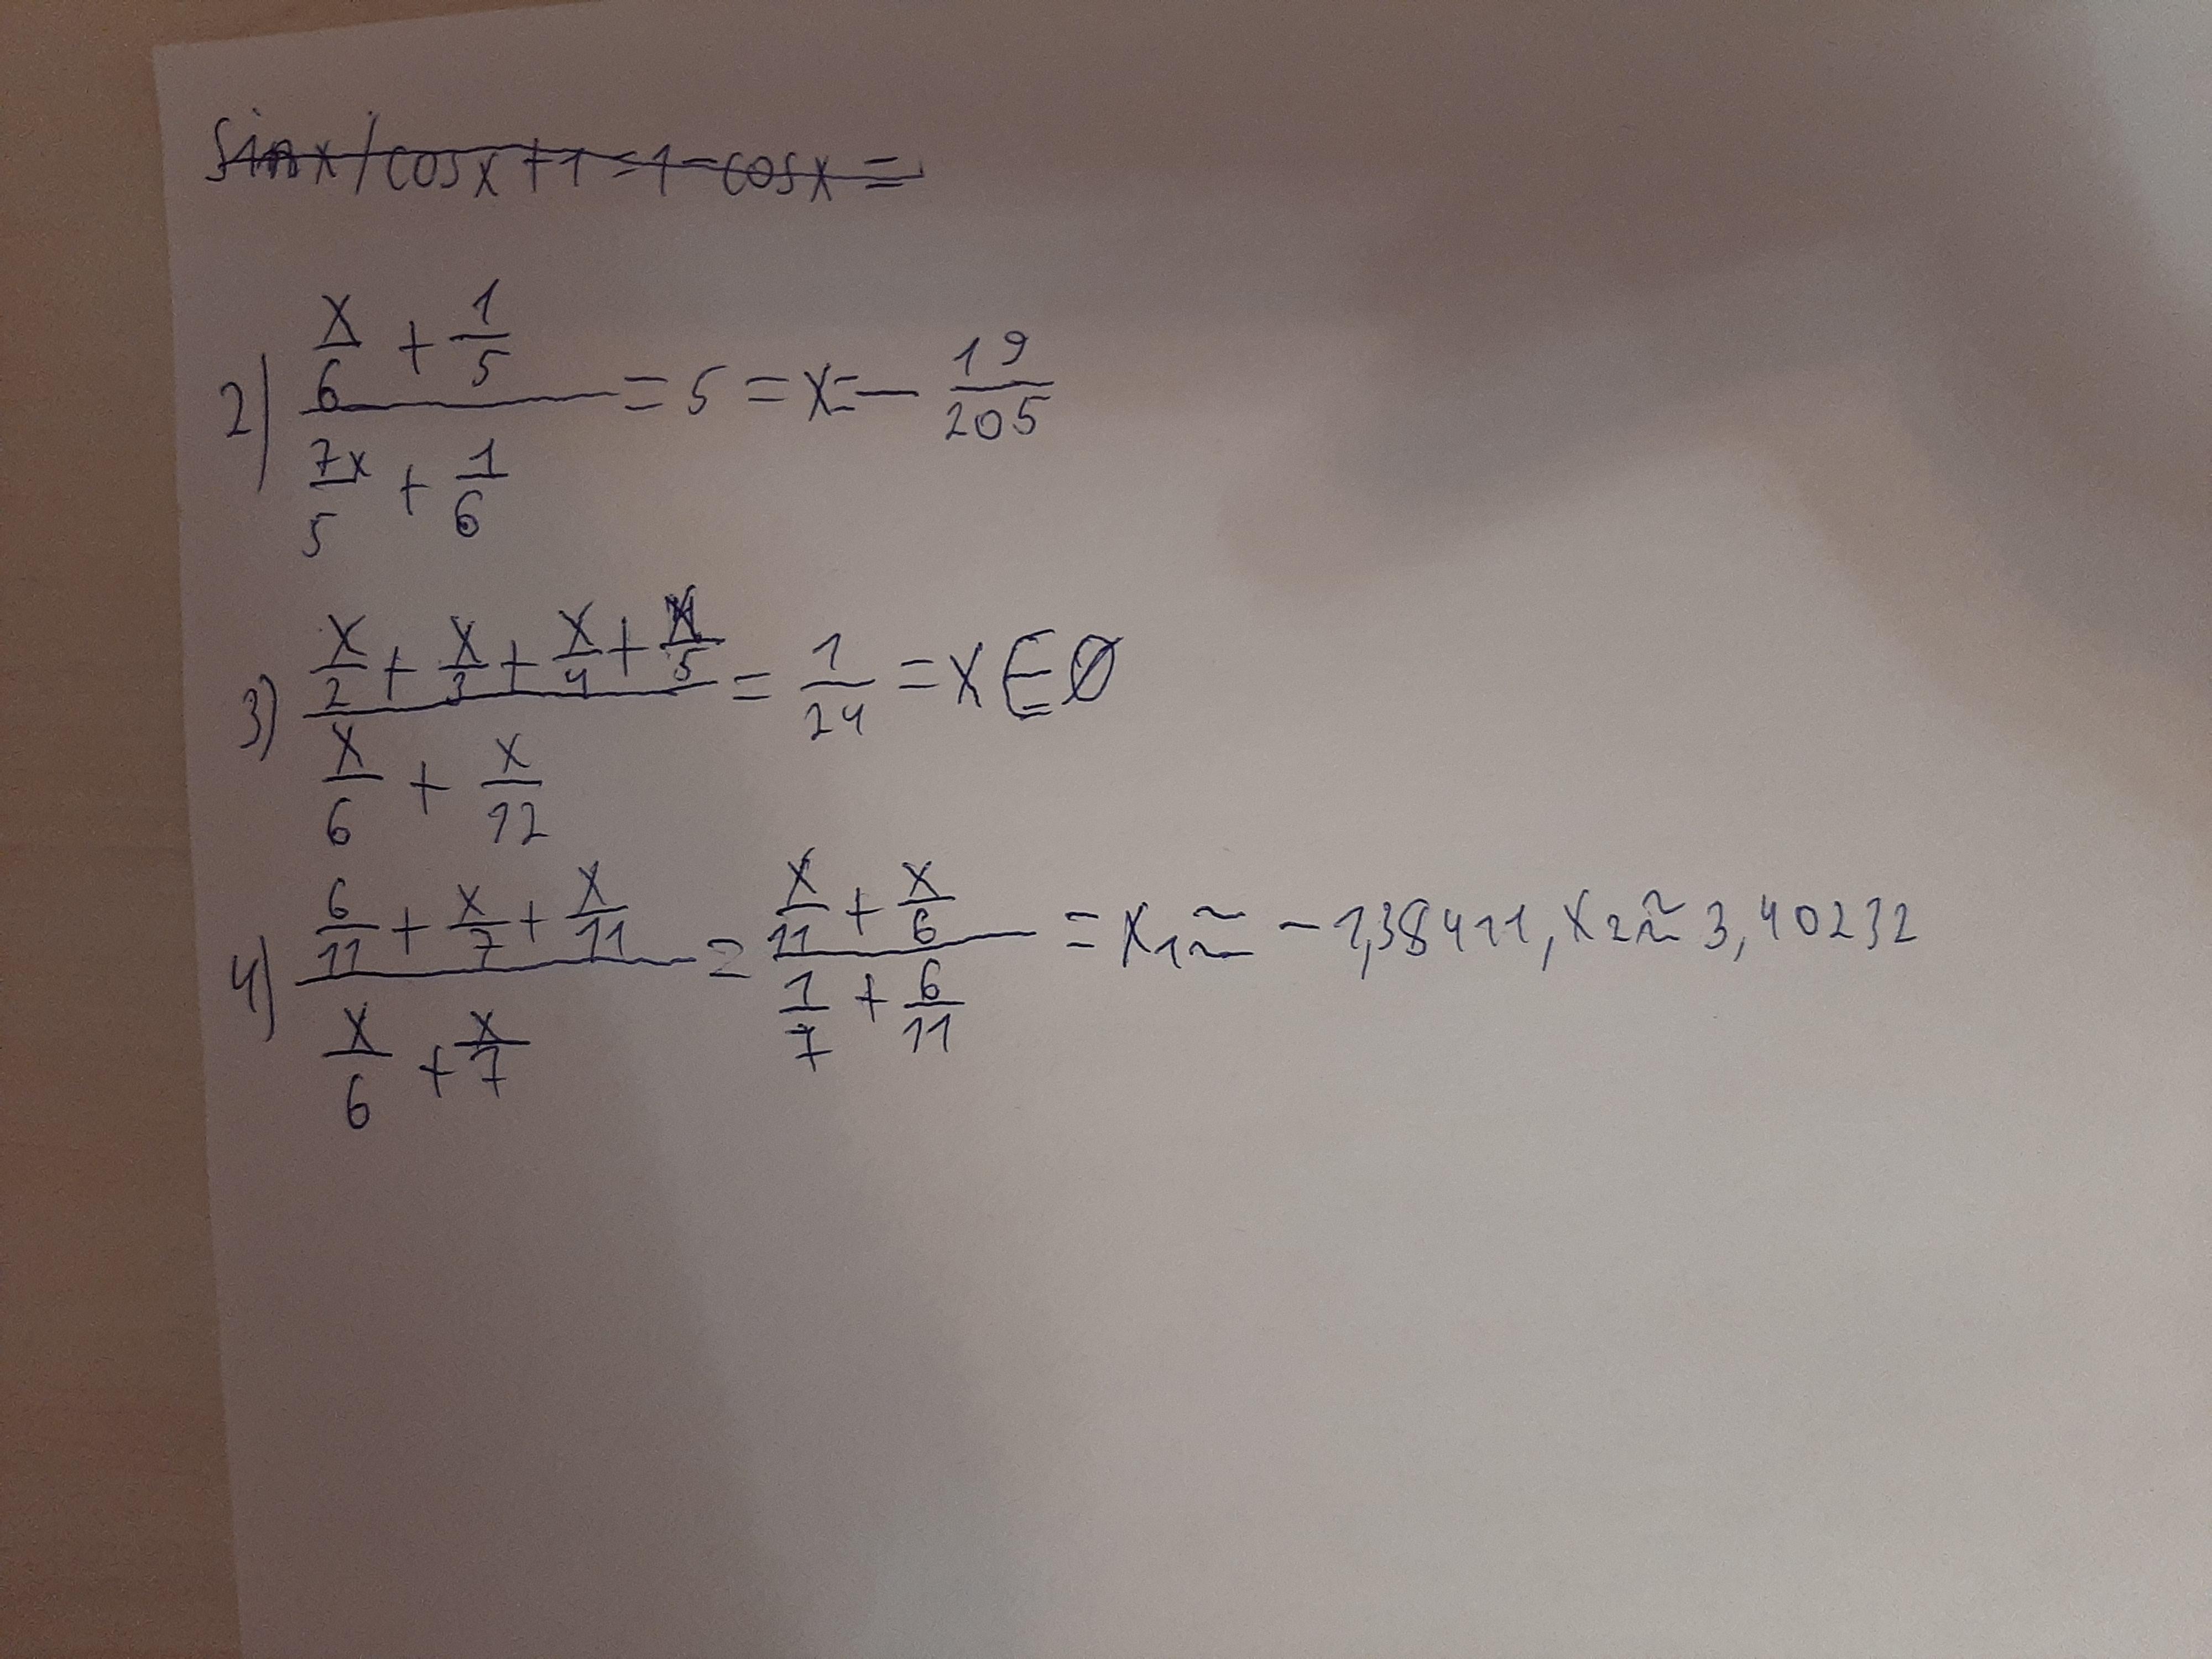 sinx/cosx+1=1-cosx=
2) (x/6 + 1/5)/(7x/5 + 1/6) = 5 = x=- 19/205
3) (x/2 + x/3 + x/4 + x/5)/(x/6 + x/12) = 1/24 = x∈∅
4) (6/11 + x/7 + x/11)/(x/6 + x/7) = (x/11 + x/6)/(1/7 + 6/11) = x₁≈ -1,38411, x₂≈ 3,40232